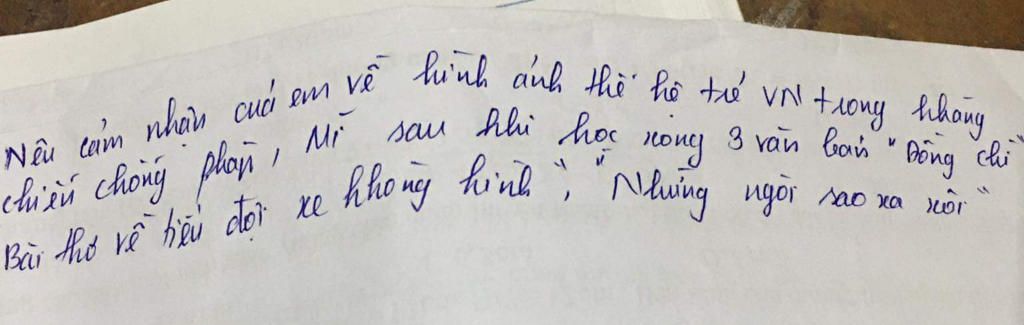 Nêu cảm nhận của em về hình ảnh thế hệ trẻ VN trong kháng
chiến chống pháp, Mĩ sau khi học xong 3 văn bản "Đồng chí"
Bài thơ về tiểu đội xe không kính", "Những ngôi sao xa xôi"